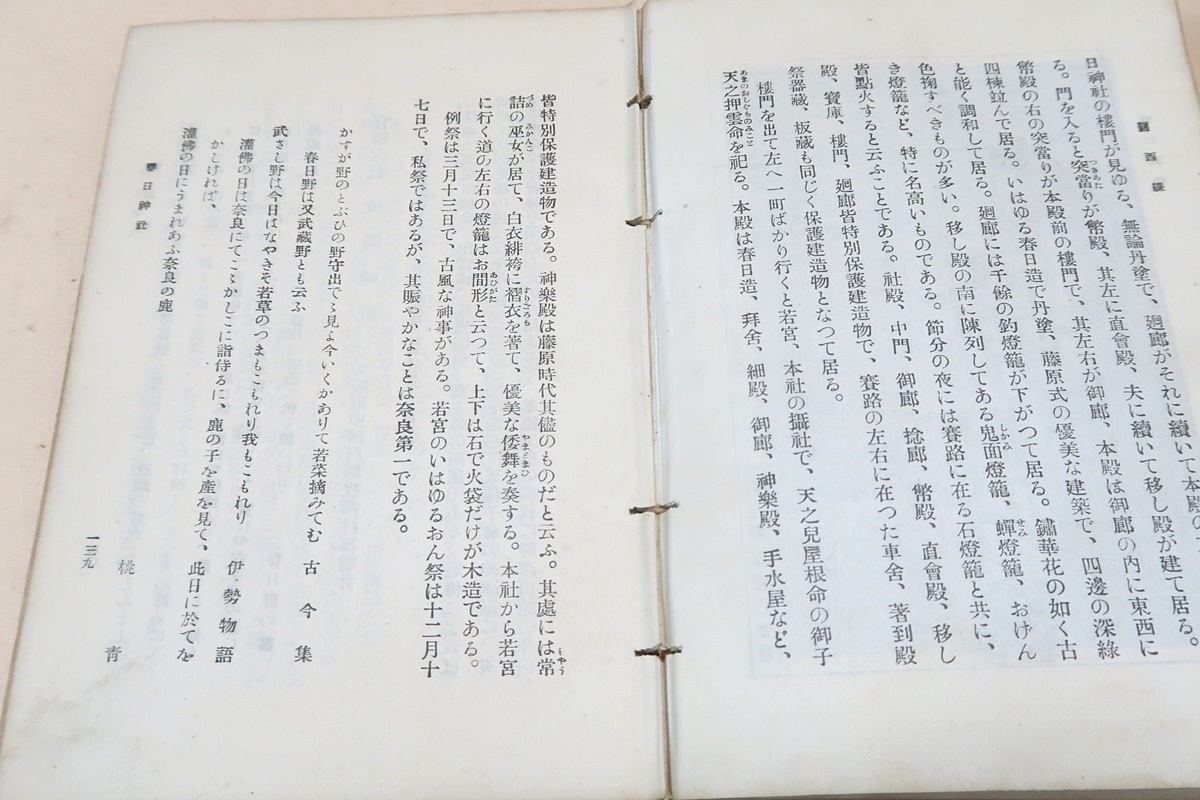 日神社の樓門が見ゆる、無論丹塗で、廻廊がそれに續いて本殿の
る。門を入ると突當りが幣殿、其左に直會殿、夫に續いて移し殿が建て居る。
幣殿の右の突當りが本殿前の樓門で、其左右が御廊、本殿は御廊の內に東西に
四棟竝んで居る。いはゆる春日造で丹塗、藤原式の優美な建築で、四邊の深綠
と能く調和して居る。廻廊には千餘の釣燈籠が下がつて居る。鏽華花の如く古
色掬すべきものが多い。移し殿の南に陳列してある鬼面燈籠、蟬燈籠、おけん
き燈籠など、特に名高いものである。節分の夜には賽路に在る石燈籠と共に、
皆點火すると云ふことである。社殿、中門、御廊、捻廊、幣殿、直會殿、移し
殿、寶庫、樓門、廻廊皆特別保護建造物で、賽路の左右に在つた車舍、著到殿
祭器藏、板藏も同じく保護建造物となつて居る。
樓門を出て左へ一町ばかり行くと若宮、本社の攝社で、天之兒屋根命の御子
天之押雲命を祀る。本殿は春日造、拜舍、細殿、御廊、神樂殿、手水屋など、
皆特別保護建造物である。神樂殿は藤原時代其儘のものだと云ふ。其處には常
詰の巫女が居て、白衣緋袴に褶衣を著て、優美な倭舞を奏する。本社から若宮
に行く道の左右の燈籠はお間形と云つて、上下は石で火袋だけが木造である。
例祭は三月十三日で、古風な神事がある。若宮のいはゆるおん祭は十二月十
七日で、私祭ではあるが、其賑やかなことは奈良第一である。
かすが野のとぶひの野守出でゝ見よ今いくかありて若菜摘みてむ 古今集
春日野は又武藏野とも云ふ
武さし野は今日はなやきそ若草のつまもこもれり我もこもれり 伊勢物語
灌佛の日は奈良にてこゝかしこに詣侍るに、鹿の子を產を見て、此日に於てを
かしければ、
灌佛の日にうまれあふ奈良の鹿 桃青
春日神社
一三九